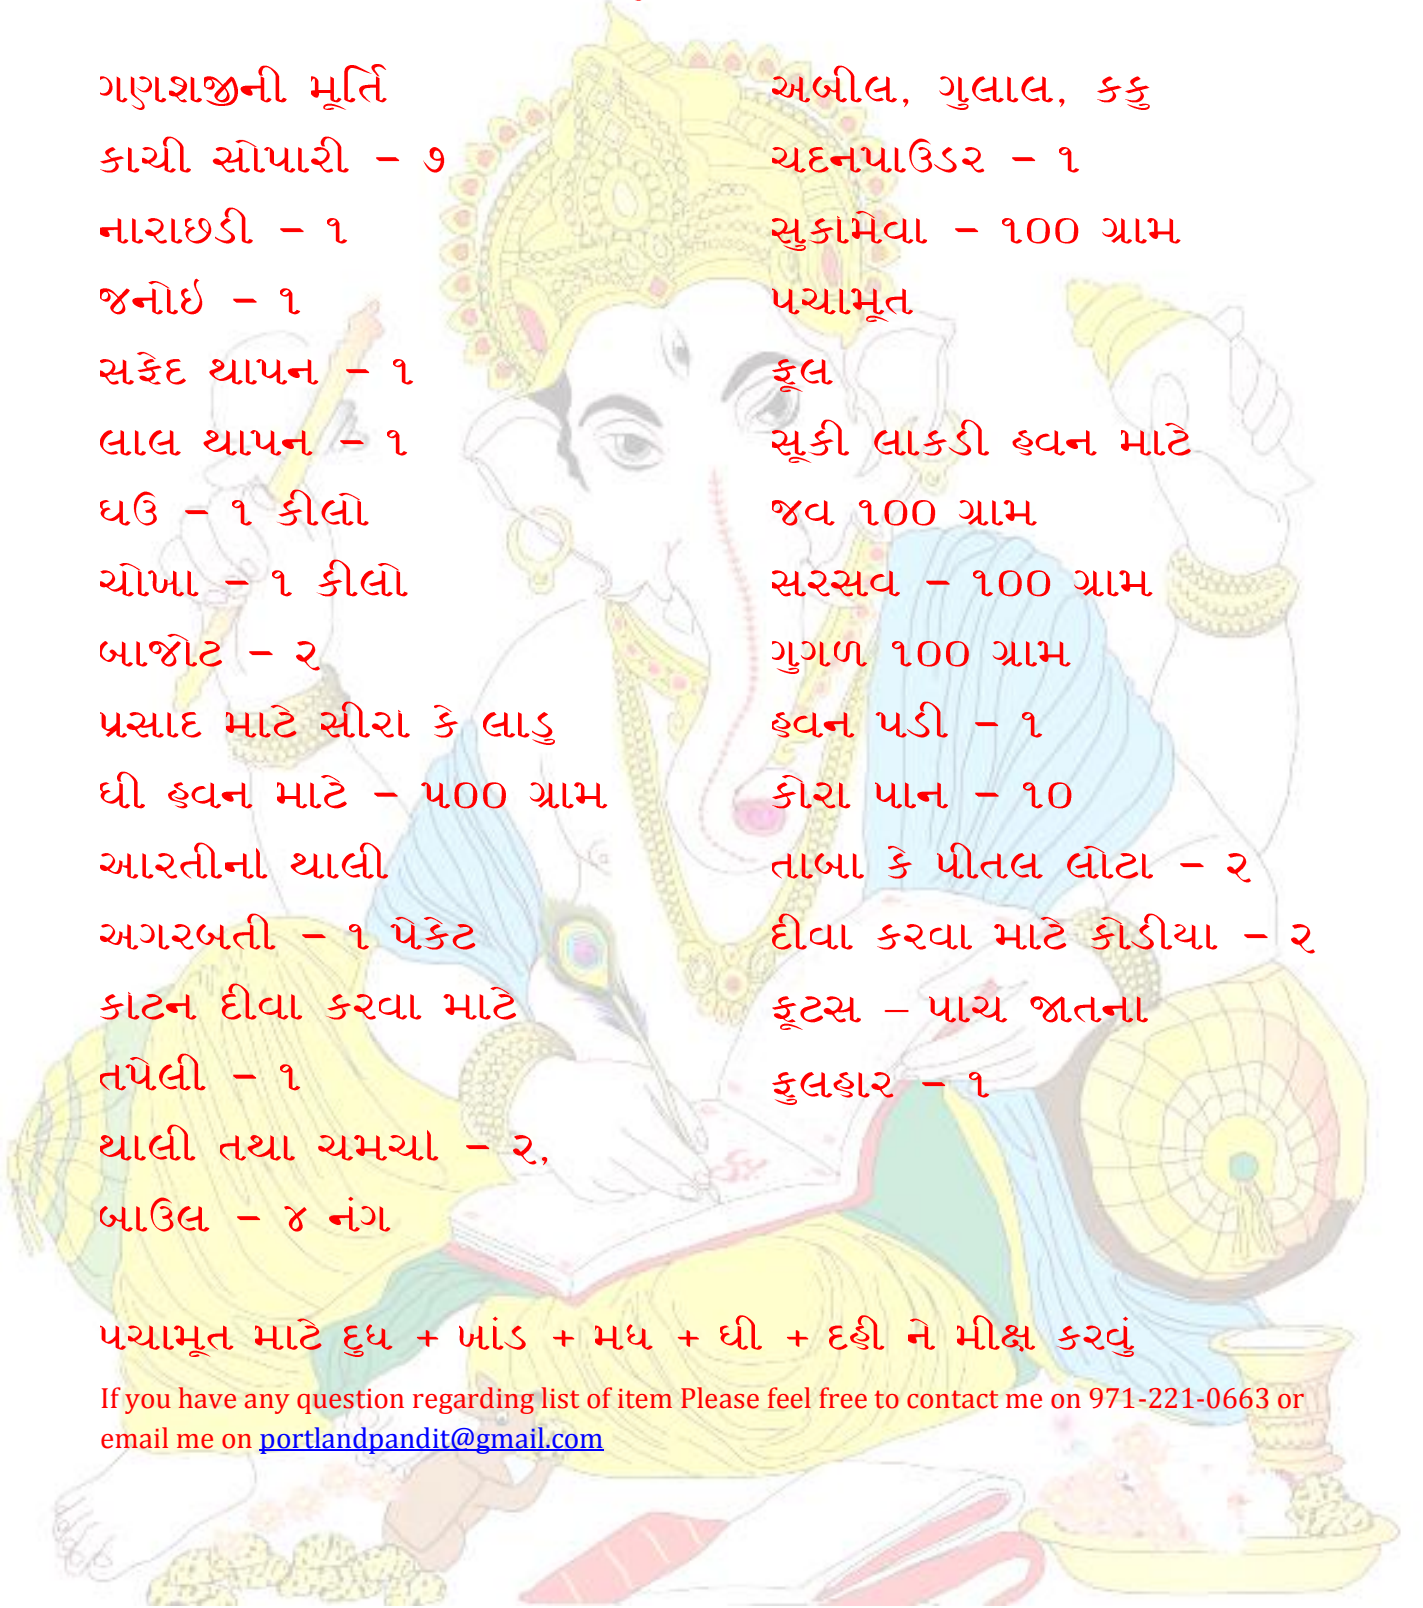 ગણશજીની મૂર્તિ
કાચી સોપારી – ૭
નારાછડી – ૧
જનોઇ – ૧
સફેદ થાપન – ૧
લાલ થાપન – ૧
ઘઉ – ૧ કીલો
ચોખા – ૧ કીલો
બાજોટ – ૨
પ્રસાદ માટે સીરો કે લાડુ
ઘી હવન માટે – ૫૦૦ ગ્રામ
આરતીની થાલી
અગરબતી – ૧ પેકેટ
કોટન દીવા કરવા માટે
તપેલી – ૧
થાલી તથા ચમચી – ૨,
બાઉલ – ૪ નંગ
અબીલ, ગુલાલ, કકુ
ચદનપાઉડર – ૧
સુકામેવા – ૧૦૦ ગ્રામ
પચામૂત
ફૂલ
સૂકી લાકડી હવન માટે
જવ ૧૦૦ ગ્રામ
સરસવ – ૧૦૦ ગ્રામ
ગુગળ ૧૦૦ ગ્રામ
હવન પડી – ૧
કોરા પાન – ૧૦
તાબા કે પીતલ લોટા – ૨
દીવા કરવા માટે કોડીયા – ૨
ફૂટસ – પાચ જાતના
ફુલહાર – ૧
પચામૂત માટે દુધ + ખાંડ + મધ + ઘી + દહી ને મીક્ષ કરવું
If you have any question regarding list of item Please feel free to contact me on 971-221-0663 or
email me on portlandpandit@gmail.com